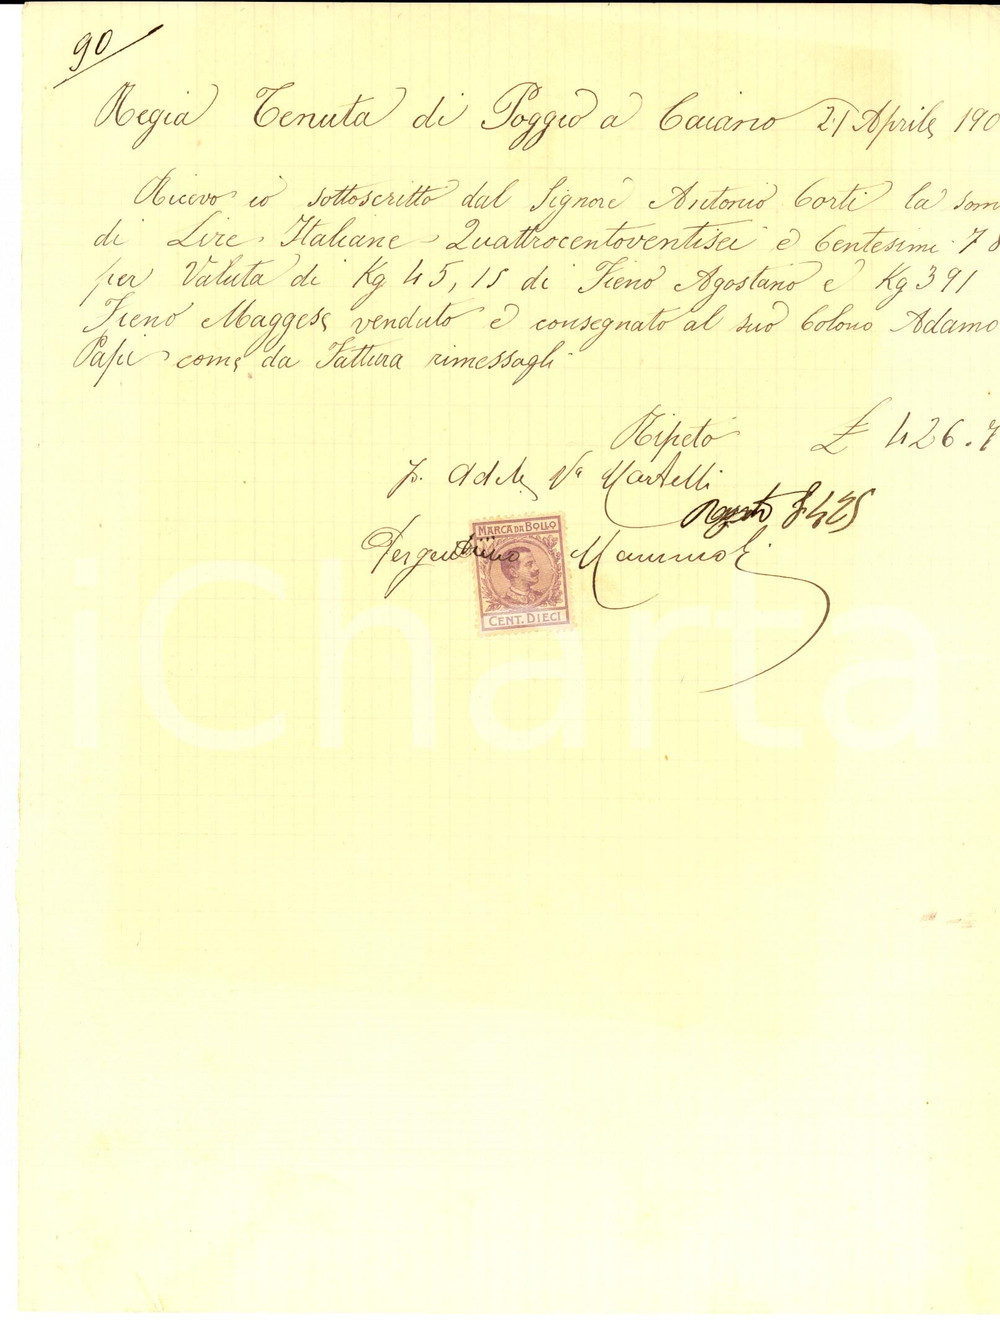 90
Regia Tenuta di Poggio a Caiano 21 Aprile 190
Ricevo io sottoscritto dal Signore Antonio Corti la som
di Lire Italiane Quattrocentoventisei e Centesimi 78
per Valuta di Kg 45,15 di Fieno Agostano e Kg 391
Fieno Maggese venduto e consegnato al suo Colono Adamo
Papi come da Fattura rimessagli
Ripeto £ 426.7
p. Adele Va Martelli
425
MARCA DA BOLLO
CENT. DIECI
iCharta